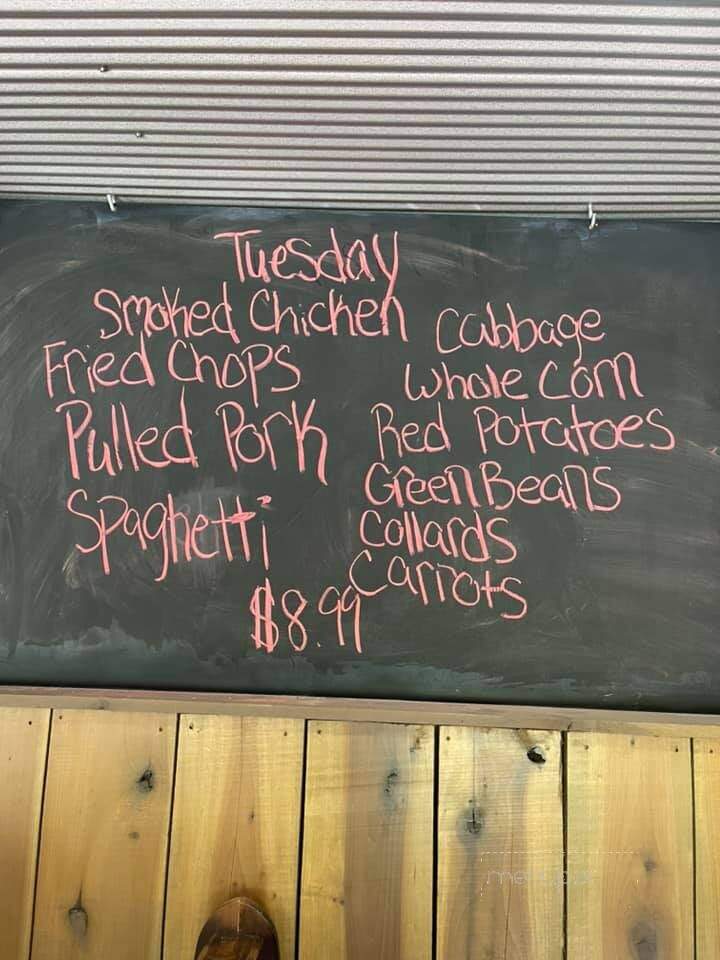 Tuesday
Smoked Chicken
Fried Chops
Pulled Pork
Spaghetti
Cabbage
Whole Corn
Red Potatoes
Green Beans
Collards
Carrots
$8.99